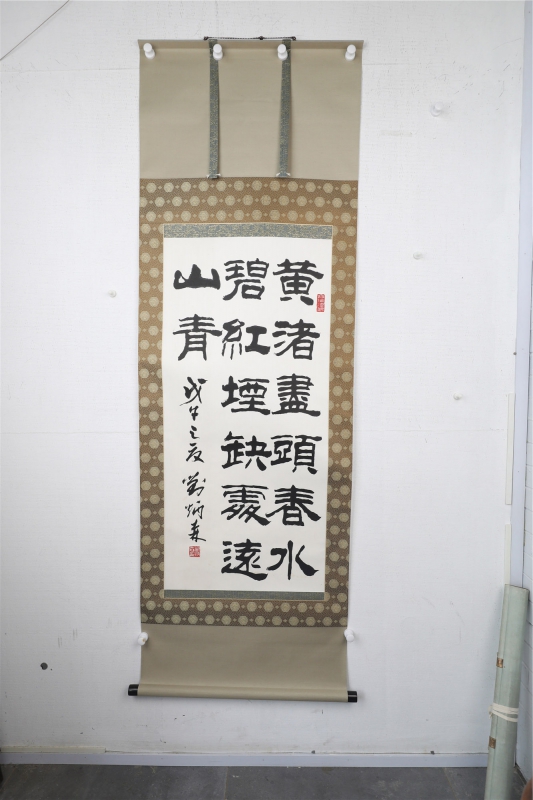 黄渚盡頭春水
碧紅堙缺處遠
山青
戊午之夏 劉炳森